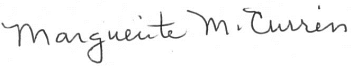 Marguerite M. Curren